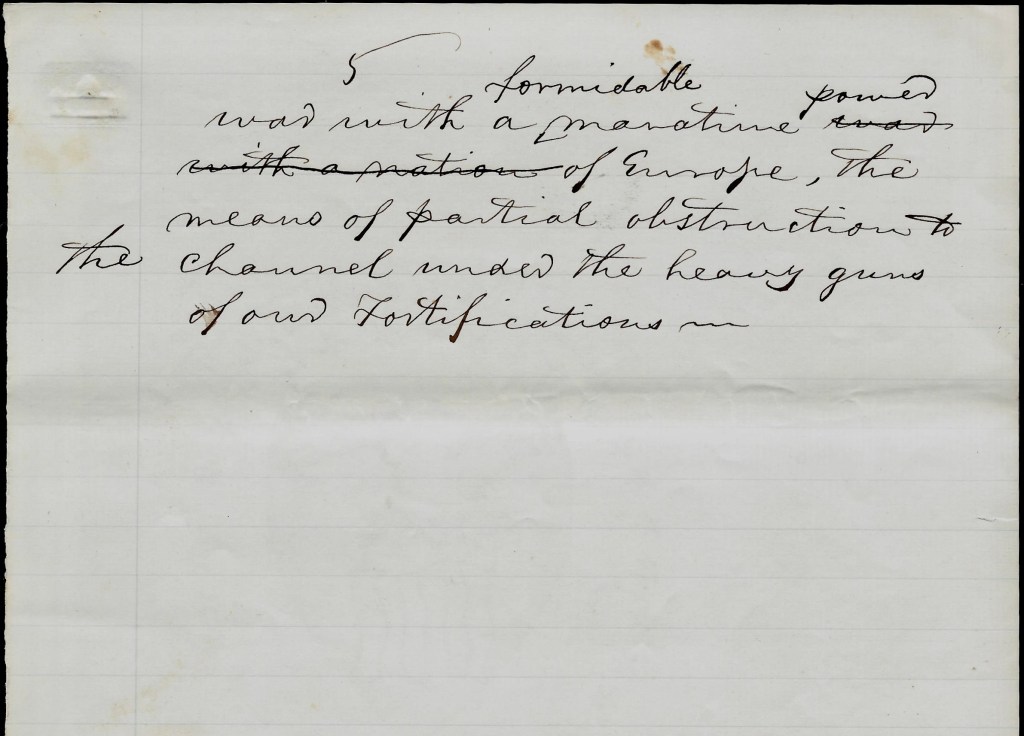 5
formidable power
war with a maratime war
with a nation of Europe, the
means of partial obstruction to
the channel under the heavy guns
of our Fortifications in